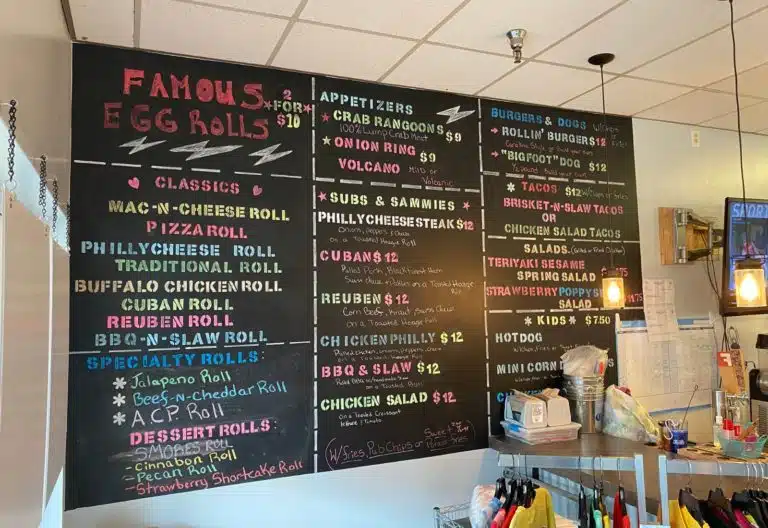 FAMOUS
EGG ROLLS
2
FOR
$10
CLASSICS
MAC-N-CHEESE ROLL
PIZZA ROLL
PHILLYCHEESE ROLL
TRADITIONAL ROLL
BUFFALO CHICKEN ROLL
CUBAN ROLL
REUBEN ROLL
BBQ-N-SLAW ROLL
SPECIALTY ROLLS:
* Jalapeno Roll
* Beef-n-Cheddar Roll
* A.C.P Roll
DESSERT ROLLS:
- SMORES ROLL
- Cinnabon Roll
- Pecan Roll
- Strawberry Shortcake Roll
APPETIZERS
CRAB RANGOONS $9
100% Lump Crab Meat
ONION RING $9
VOLCANO Mild or
Volcanic
SUBS & SAMMIES
PHILLYCHEESESTEAK $12
Onions, Peppers & Cheese
on a Toasted Hoagie Roll
CUBAN $12
Pulled Pork, Black Forest Ham
REUBEN $12
Corn Beef, Kraut, Swiss Cheese
on a Toasted Hoagie Roll
CHICKEN PHILLY $12
on a Toasted Hoagie Roll
BBQ & SLAW $12
on a Toasted Bun
CHICKEN SALAD $12
on a Toasted Croissant
lettuce & Tomato
W/fries, Pub Chips or Sweet
Potato fries
BURGERS & DOGS
ROLLIN' BURGER $12
Carolina Style or Build your own
"BIGFOOT" DOG $12
Build your own
* TACOS $12
BRISKET-N-SLAW TACOS
OR
CHICKEN SALAD TACOS
SALADS
TERIYAKI SESAME
SPRING SALAD
STRAWBERRY POPPY
SALAD
* KIDS * $7.50
HOTDOG
MINI CORN
SPORT